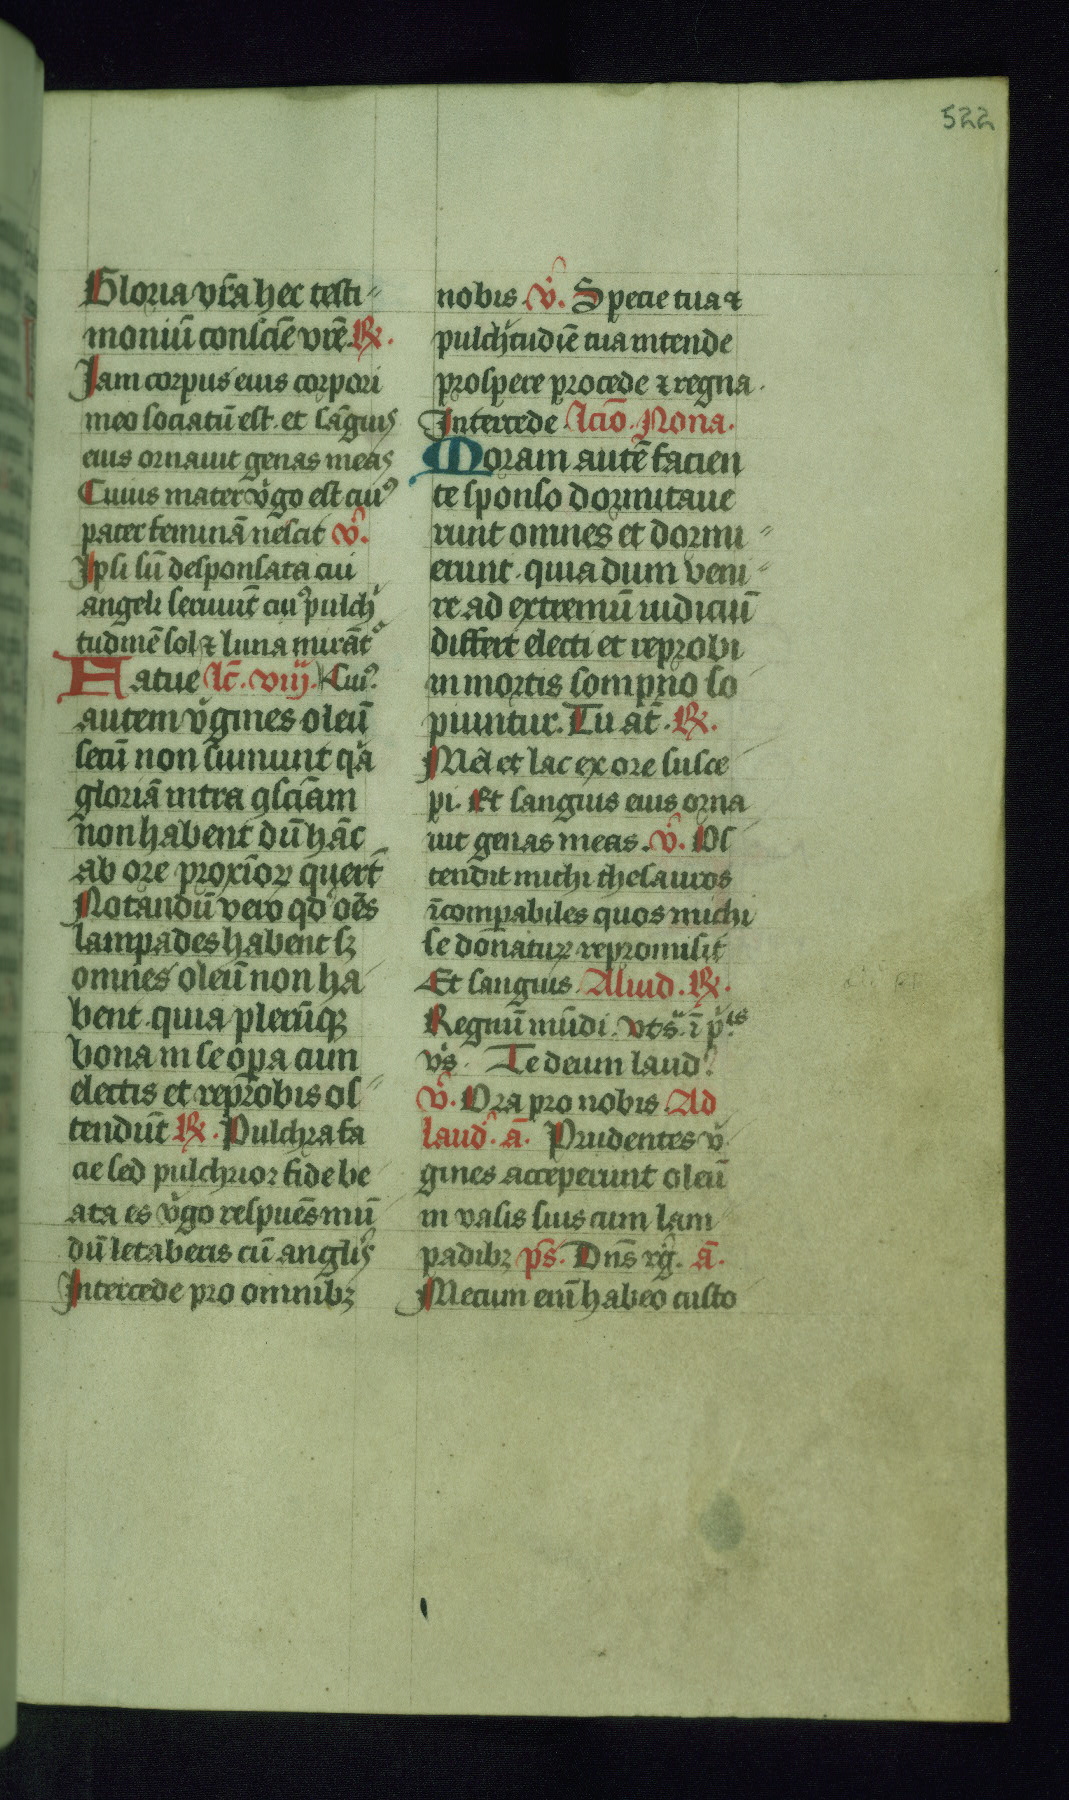 522
Gloria vr̄a hec testi
moniū consciē vrē. R̷.
Jam corpus eius corpori
meo sociatū est. et sāguis
eius ornauit genas meas
Cuius mater v̓go est cui9
pater feminā nescit v̓.
Jpsi sū desponsata cui
angeli seruiūt cui9 pulch̓
tudinē sol ⁊ luna mirāt᷑
Fatue lc̄. viij. sui9
autem v̓gines oleū
secū non sumunt q̓a
gloriā intra ꝯsciam
non habent dū hāc
ab ore proxīoꝝ querūt
Notandū vero qd̓ oēs
lampades habent sꝫ
omnes oleū non ha
bent quia plerūqꝫ
bona in se oꝑa cum
electis et reprobis os
tendūt R̷. Pulchra fa
cie sed pulchrior fide be
ata es v̓go respuēs mū
dū letaberis cū angl̓is
Jntercede pro omnibꝫ
nobis. v̓. Specie tua ⁊
pulch̓tudīe tua intende
prospere procede ⁊ regna.
Jntercede Lcīo. Nona.
Moram autē facien
te sponso dormitaue
runt omnes et dormi
erunt. quia dum veni
re ad extremū iudiciū
differt electi et reprobi
in mortis sompno so
piuntur. Tu āt. R̷.
Mel et lac ex ore susce
pi. Et sanguis eius orna
uit genas meas. v̓. Os
tendit michi thesauros
īcomꝑabiles quos michi
se donaturꝫ repromisit
Et sanguis. Aliud. R̷.
Regnū mūdi. vts̄. ī p̓is
v̓s. Te deum laud9
v̓. Ora pro nobis. Ad
laud̓. ā. Prudentes v̓
gines acceperunt oleū
in vasis suis cum lam
padibꝫ ps̄. Dns̄ rg̓. ā.
Mecum eni̅ habeo custo